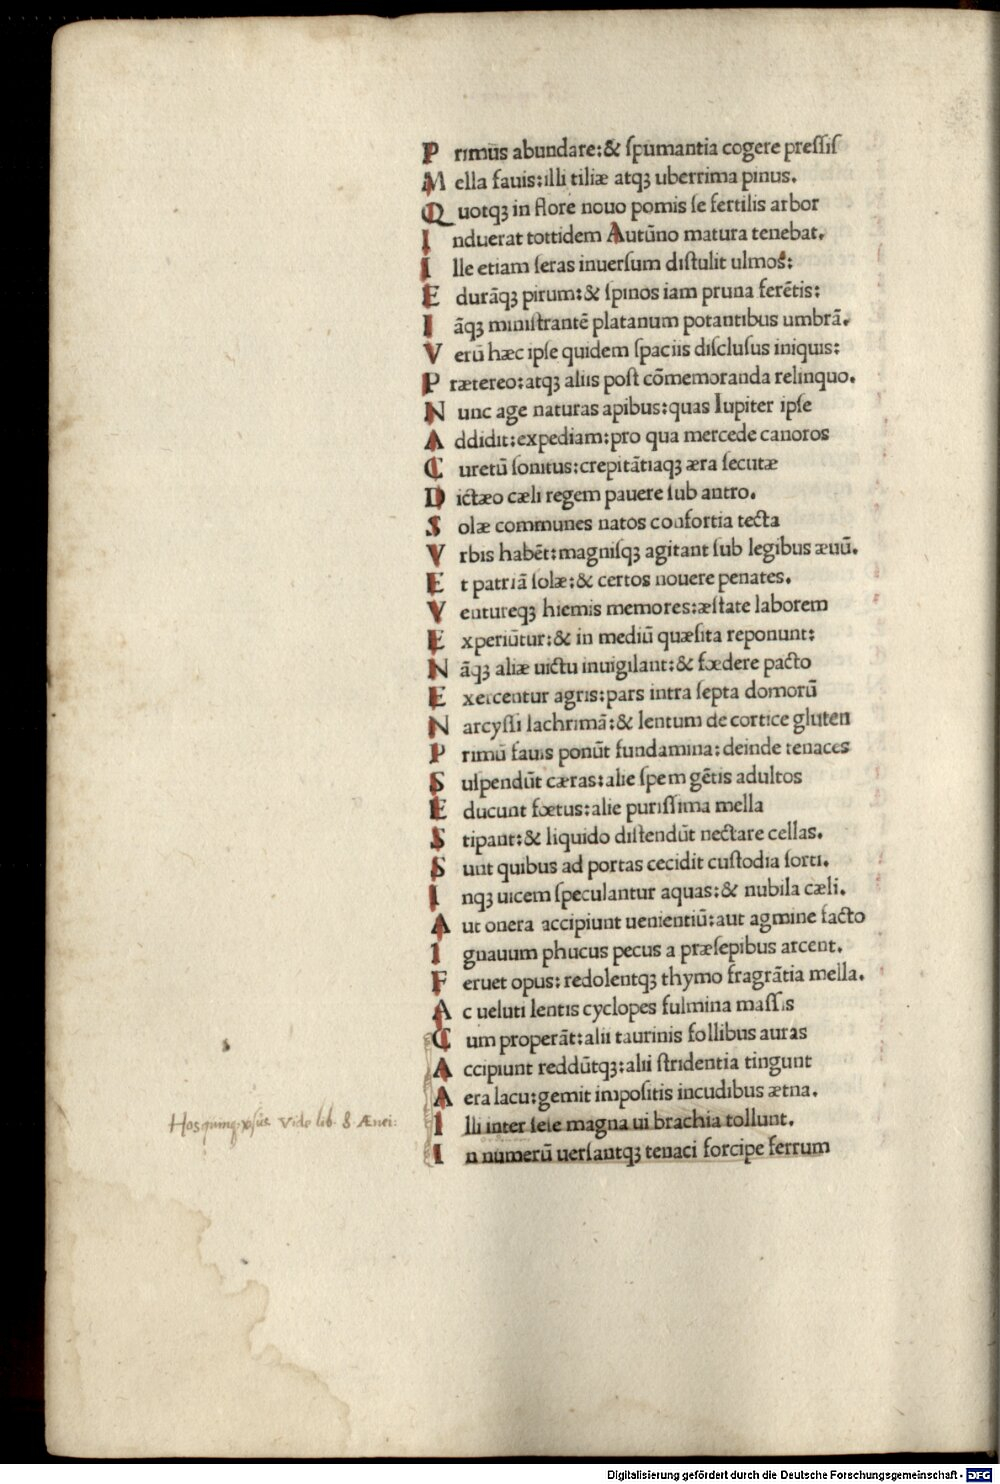 P rimus abundare:& ſpumantia cogere preſſiſ
M ella fauis:illi tiliæ atqꝫ uberrima pinus.
Q uotqꝫ in flore nouo pomis ſe fertilis arbor
I nduerat tottidem Autūno matura tenebat.
I lle etiam ſeras inuerſum diſtulit ulmos:
E durāqꝫ pirum:& ſpinos iam pruna ferētis:
I āqꝫ miniſtrantē platanum potantibus umbrā.
V erū hæc ipſe quidem ſpaciis diſcluſus iniquis:
P rætereo:atqꝫ aliis poſt cōmemoranda relinquo.
N unc age naturas apibus:quas Iupiter ipſe
A ddidit:expediam:pro qua mercede canoros
C uretū ſonitus:crepitātiaqꝫ æra ſecutæ
D ictæo cæli regem pauere ſub antro.
S olæ communes natos conſortia tecta
V rbis habēt:magniſqꝫ agitant ſub legibus æuū.
E t patriā ſolæ:& certos nouere penates.
V entureqꝫ hiemis memores:æſtate laborem
E xperiūtur:& in mediū quæſita reponunt:
N āqꝫ aliæ uictu inuigilant:& fœdere pacto
E xercentur agris:pars intra ſepta domorū
N arcyſſi lachrimā:& lentum de cortice gluten
P rimū fauis ponūt fundamina:deinde tenaces
S uſpendūt cæras:alie ſpem gētis adultos
E ducunt fœtus:alie puriſſima mella
S tipant:& liquido diſtendūt nectare cellas.
S unt quibus ad portas cecidit cuſtodia ſorti.
I nqꝫ uicem ſpeculantur aquas:& nubila cæli.
A ut onera accipiunt uenientiū:aut agmine facto
I gnauum phucus pecus a præſepibus arcent.
F eruet opus:redolentqꝫ thymo fragrātia mella.
A c ueluti lentis cyclopes fulmina maſſis
C um properāt:alii taurinis follibus auras
A ccipiunt reddūtqꝫ:alii ſtridentia tingunt
A era lacu:gemit impoſitis incudibus ætna.
Hos quinqꝫ Vide lib. 8 Ænei:
I lli inter ſeſe magna ui brachia tollunt.
I n numerū uerſantqꝫ tenaci forcipe ferrum
Digitalisierung gefördert durch die Deutsche Forschungsgemeinschaft - DFG